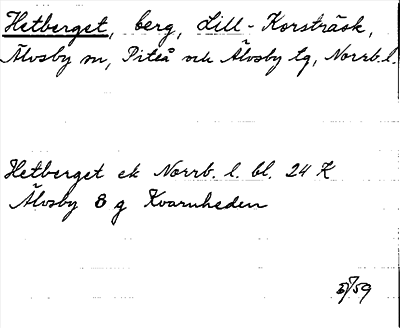 Hetberget, berg, Lill-Korsträsk,
Älvsby sn, Piteå och Älvsby tg, Norrb. l.
Hetberget ek Norrb. l. bl. 24 K
Älvsby 8 g Kvarnheden